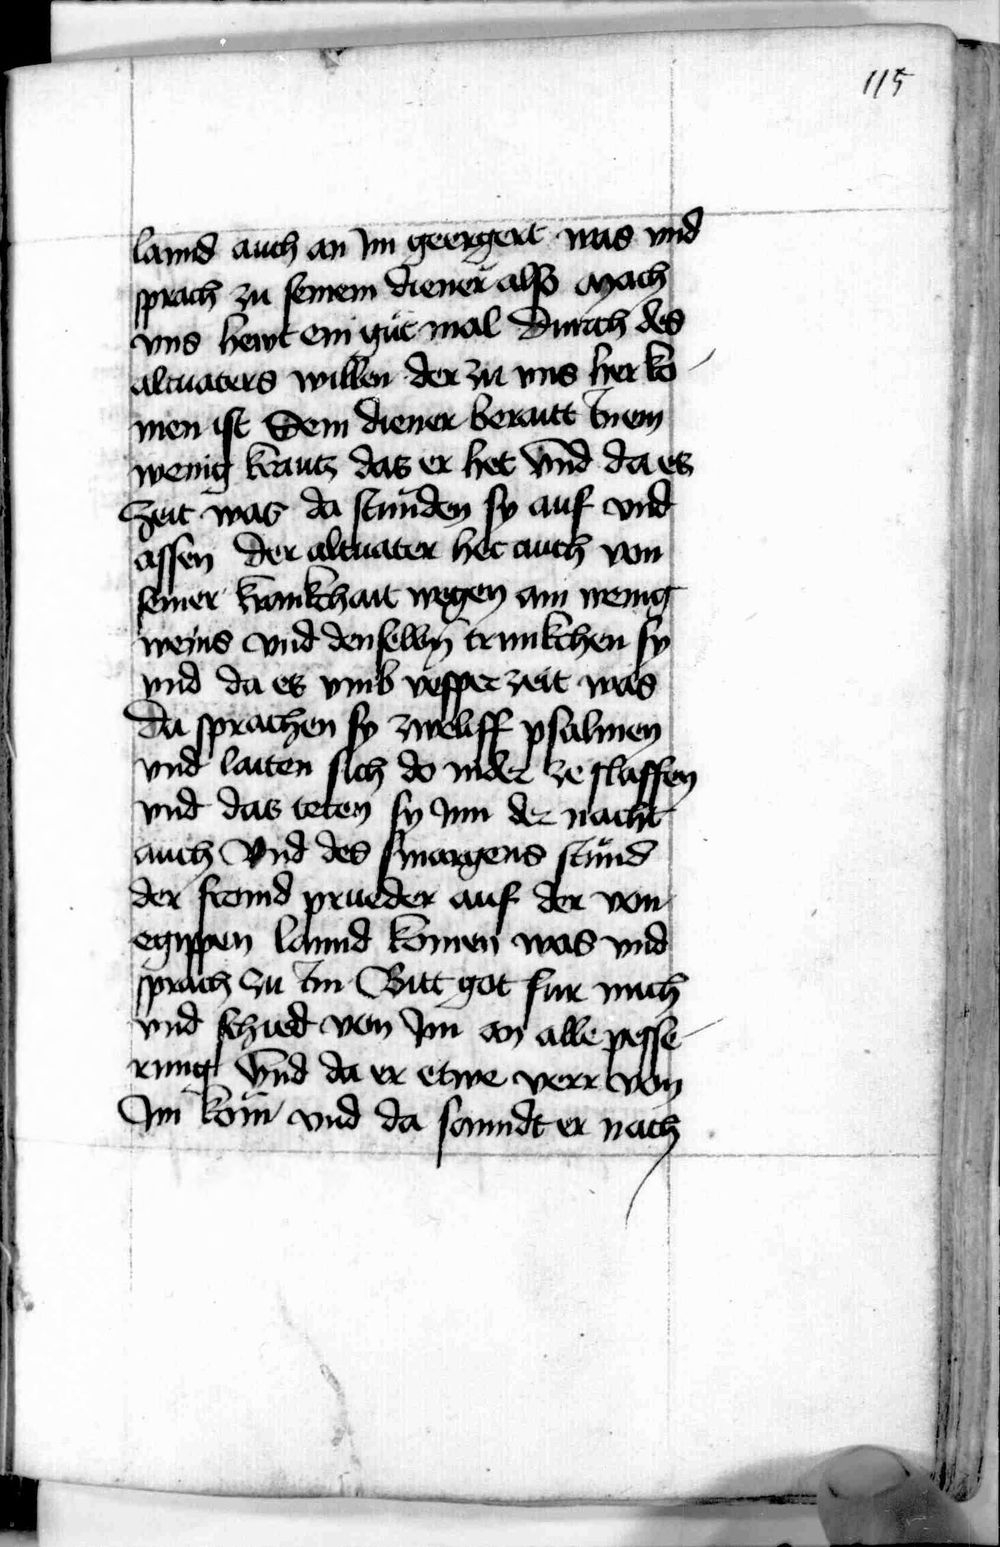 115
lannd auch an Im geergert was vnd
sprach zu seinem diener also Mach
vns hewt ein güt mal Durch des
altuaters willen der zu vns her ko
men ist Dem diener beraitt Inem
wenig krautz das er het Vnd da es
zeit was da stunden sy auf vnd
assen Der altuater het auch von
seiner krankchait wegen ain wenig
weins vnd denselbn trunkchen sy
vnd da es vmb vesper zeit was
Da sprachen sy zweliff psalmen
vnd laiten sich do nider ze slaffen
vnd das teten sy Inn der nacht
auch Vnd des smargens stünd
der fremd prueder auf der von
egippen lannd komen was vnd
sprach zu Im Bitt got fur mich
vnd schied von Im an alle pesse
rung Vnd da er etwe verr von
Im kom vnd da sanndt er nach